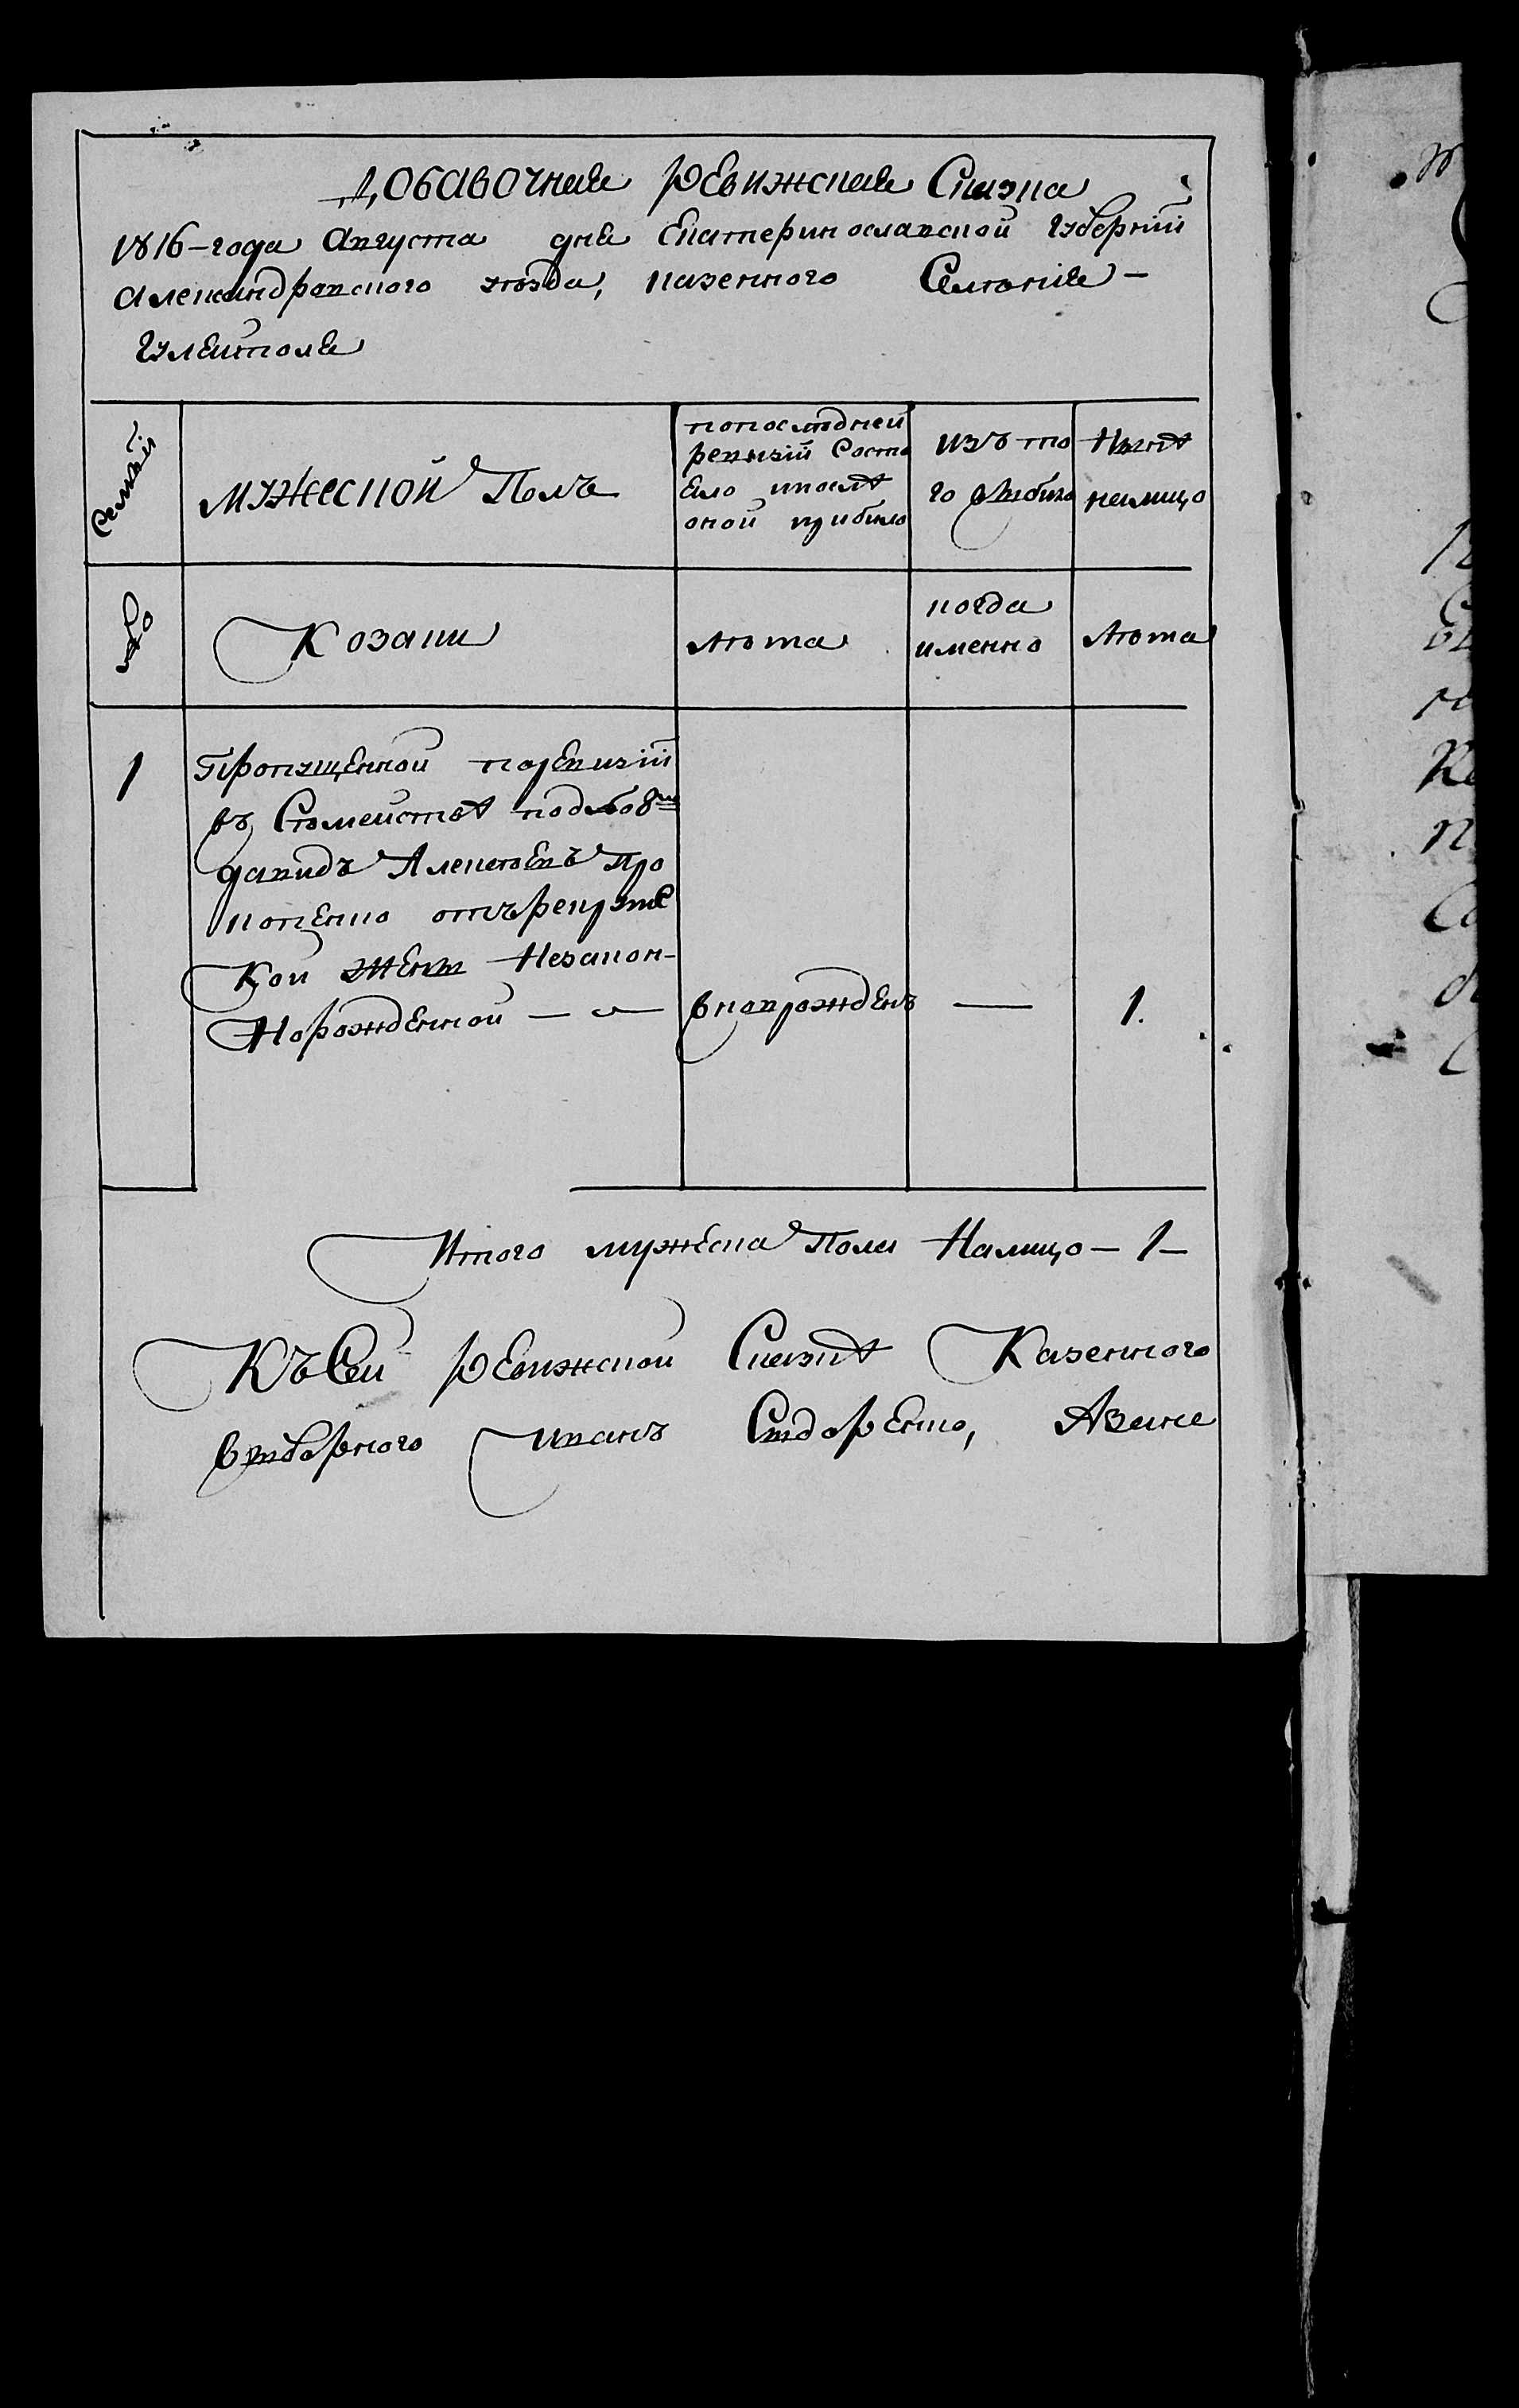 Добавочная ревижская Сказка
1816-года Августа дня Екатеринославской губерний
Александровского уезда, казенного Селения -
Гуляйполя
Семьи
мужеской Полъ
попоследней
ревизіи Состо
яло ипосле
оной прибило
изъ то
го выбыло
Ныне
налицо
№
Козаки
лета
когда
именно
лета
1
Пропущенной поревизіи
въ Семействе под №8м
давидъ Алексеевъ Про
копенко отърекрутс
Кой жены Незакон-
Норожденной — —
вновърожденъ
—
1.
Итого мужеска Пола Налицо — 1 —
Къ Сей ревижской Сказке Казенного
выборного иванъ Сидоренко,